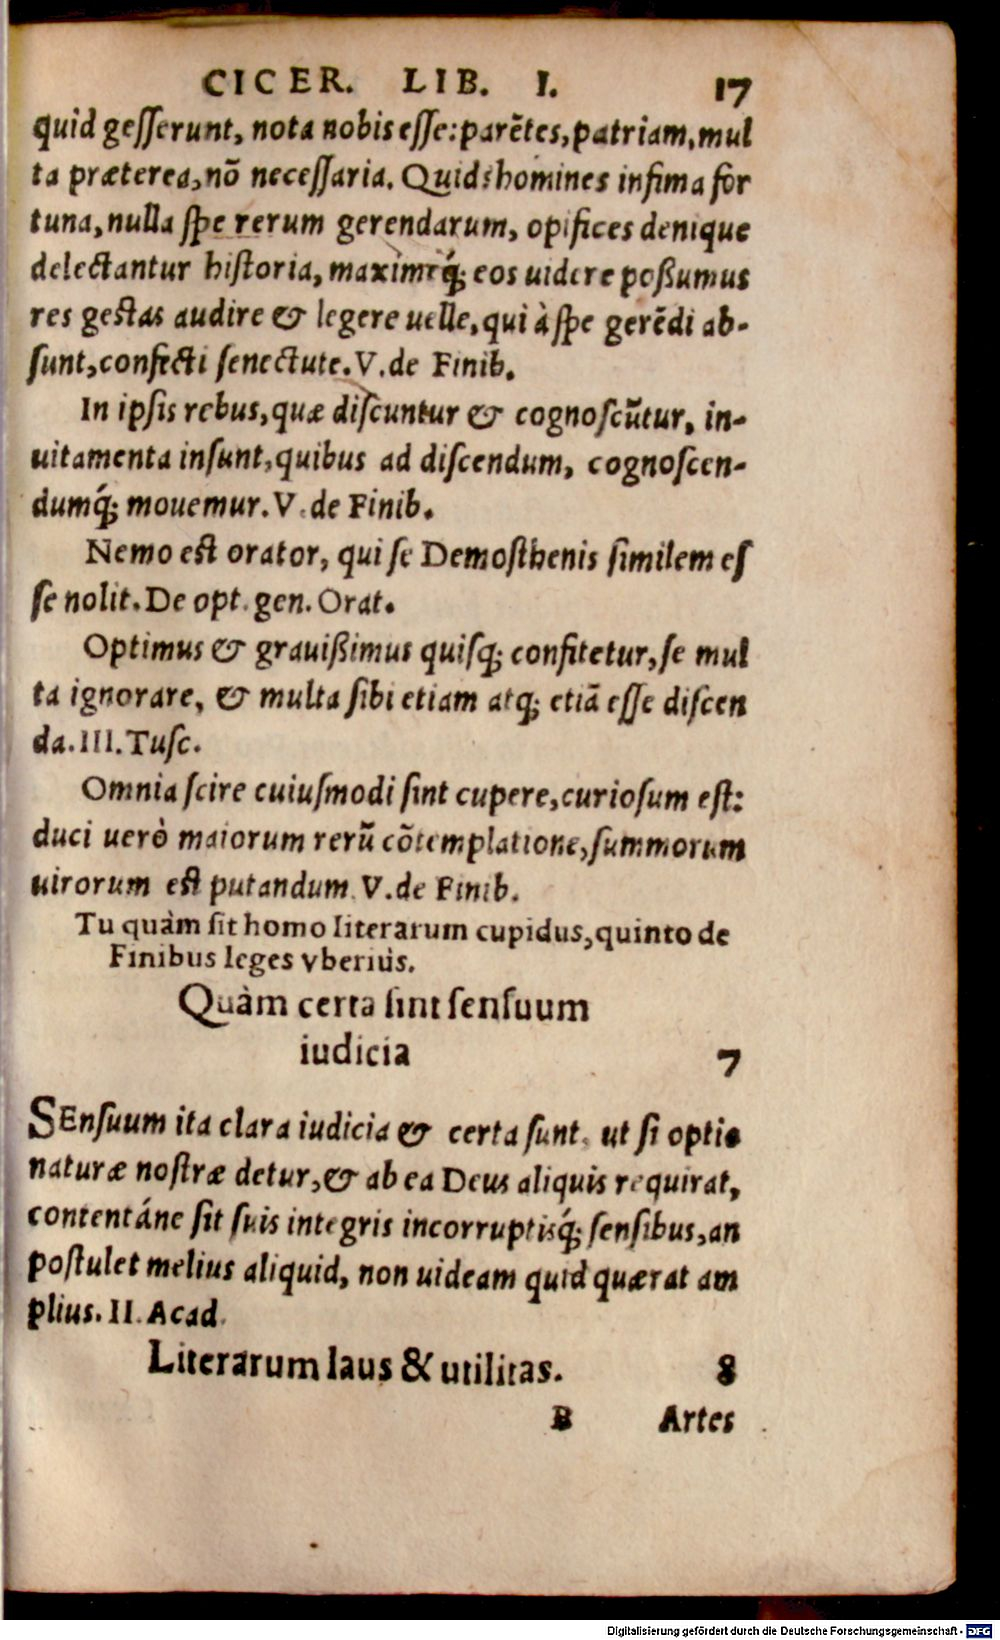 CICER. LIB. I. 17
quid gesserunt, nota nobis esse: parẽtes, patriam, mul
ta præterea, nõ necessaria. Quid? homines infima for
tuna, nulla spe rerum gerendarum, opifices denique
delectantur historia, maximeq́; eos uidere poßumus
res gestas audire & legere uelle, qui à spe gerẽdi ab-
sunt, confecti senectute. V. de Finib.
In ipsis rebus, quæ discuntur & cognoscũtur, in-
uitamenta insunt, quibus ad discendum, cognoscen-
dumq́; mouemur. V. de Finib.
Nemo est orator, qui se Demosthenis similem es
se nolit. De opt. gen. Orat.
Optimus & grauißimus quisq; confitetur, se mul
ta ignorare, & multa sibi etiam atq; etiã esse discen
da. III. Tusc.
Omnia scire cuiusmodi sint cupere, curiosum est:
duci uerò maiorum rerũ cõtemplatione, summorum
uirorum est putandum. V. de Finib.
Tu quàm sit homo literarum cupidus, quinto de
Finibus leges vberiùs.
Quàm certa sint sensuum
iudicia 7
SEnsuum ita clara iudicia & certa sunt, ut si optio
naturæ nostræ detur, & ab ea Deus aliquis requirat,
contentáne sit suis integris incorruptisq́; sensibus, an
postulet melius aliquid, non uideam quid quærat am
plius. II. Acad.
Literarum laus & utilitas. 8
B Artes
Digitalisierung gefördert durch die Deutsche Forschungsgemeinschaft - DFG